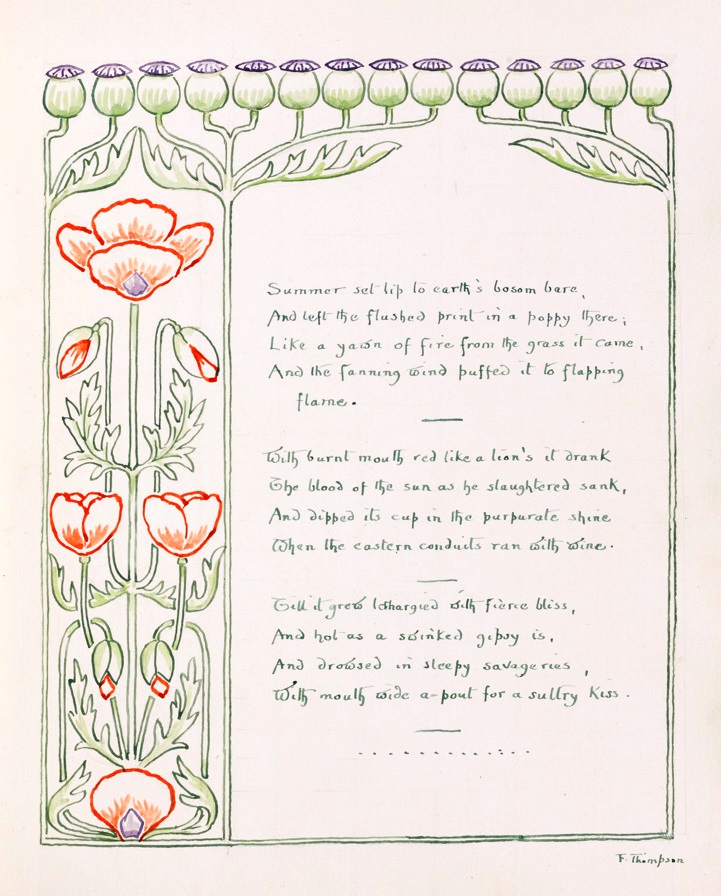 Summer set lip to earth's bosom bare,
And left the flushed print in a poppy there;
Like a yawn of fire from the grass it came,
And the fanning wind puffed it to flapping
flame.
With burnt mouth red like a lion's it drank
The blood of the sun as he slaughtered sank,
And dipped its cup in the purpurate shine
When the eastern conduits ran with wine.
Till it grew lethargied with fierce bliss,
And hot as a swinked gipsy is,
And drowsed in sleepy savageries,
With mouth wide a-pout for a sultry kiss.
. . . . . . . . . . . . .
F. Thompson